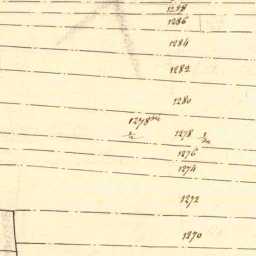 1288
1286
1284
1282
1280
1278
1278
1276
1274
1272
1270